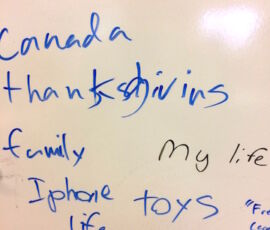 Canada
thanksgivins
family My life
Iphone toys "Fre
life